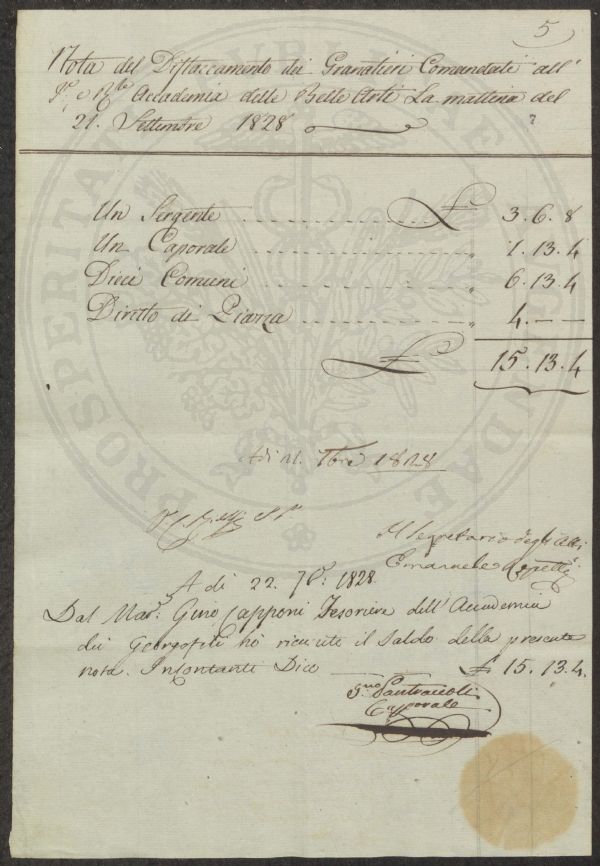 5
Nota del Distaccamento dei Granatieri Comandati all'
Accademia delle Belle Arti La mattina del
21. Settembre 1828
Un Sergente £ 3.6.8
Un Caporale " 1.13.4
Dieci Comuni " 6.13.4
Diretto di Piazza " 4.—.—
£ 15.13.4
A di 21. 7bre 1828
Il Segretario degli Atti
Emanuele Repetti
A di 22. 7bre 1828.
Dal Mar. Gino Capponi Tesoriere dell'Accademia
dei Georgofili hò ricevuto il Saldo della presente
nota. In Contanti Dico £ 15.13.4.
Caporale
PROSPERITATI PUBLICAE AUGENDAE